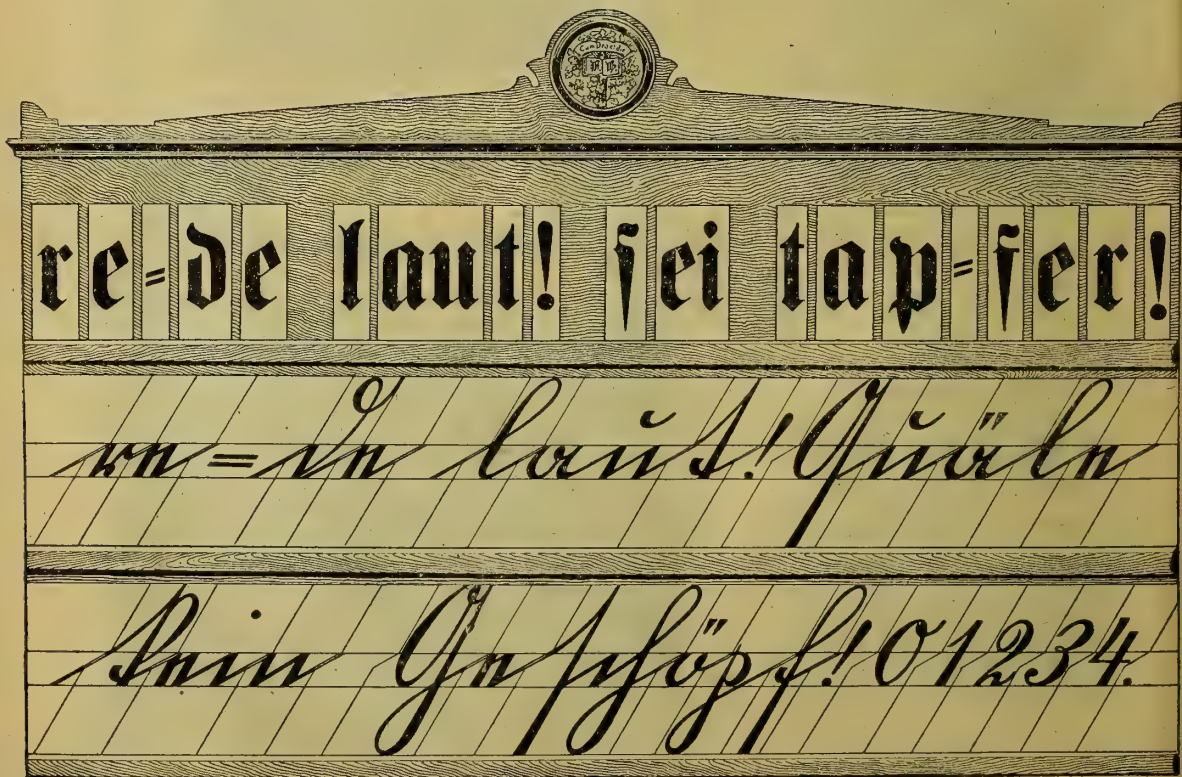 re=de laut! ſei tap=fer!
re=de laut! Quäle
kein Geſchöpf! 0 1 2 3 4.